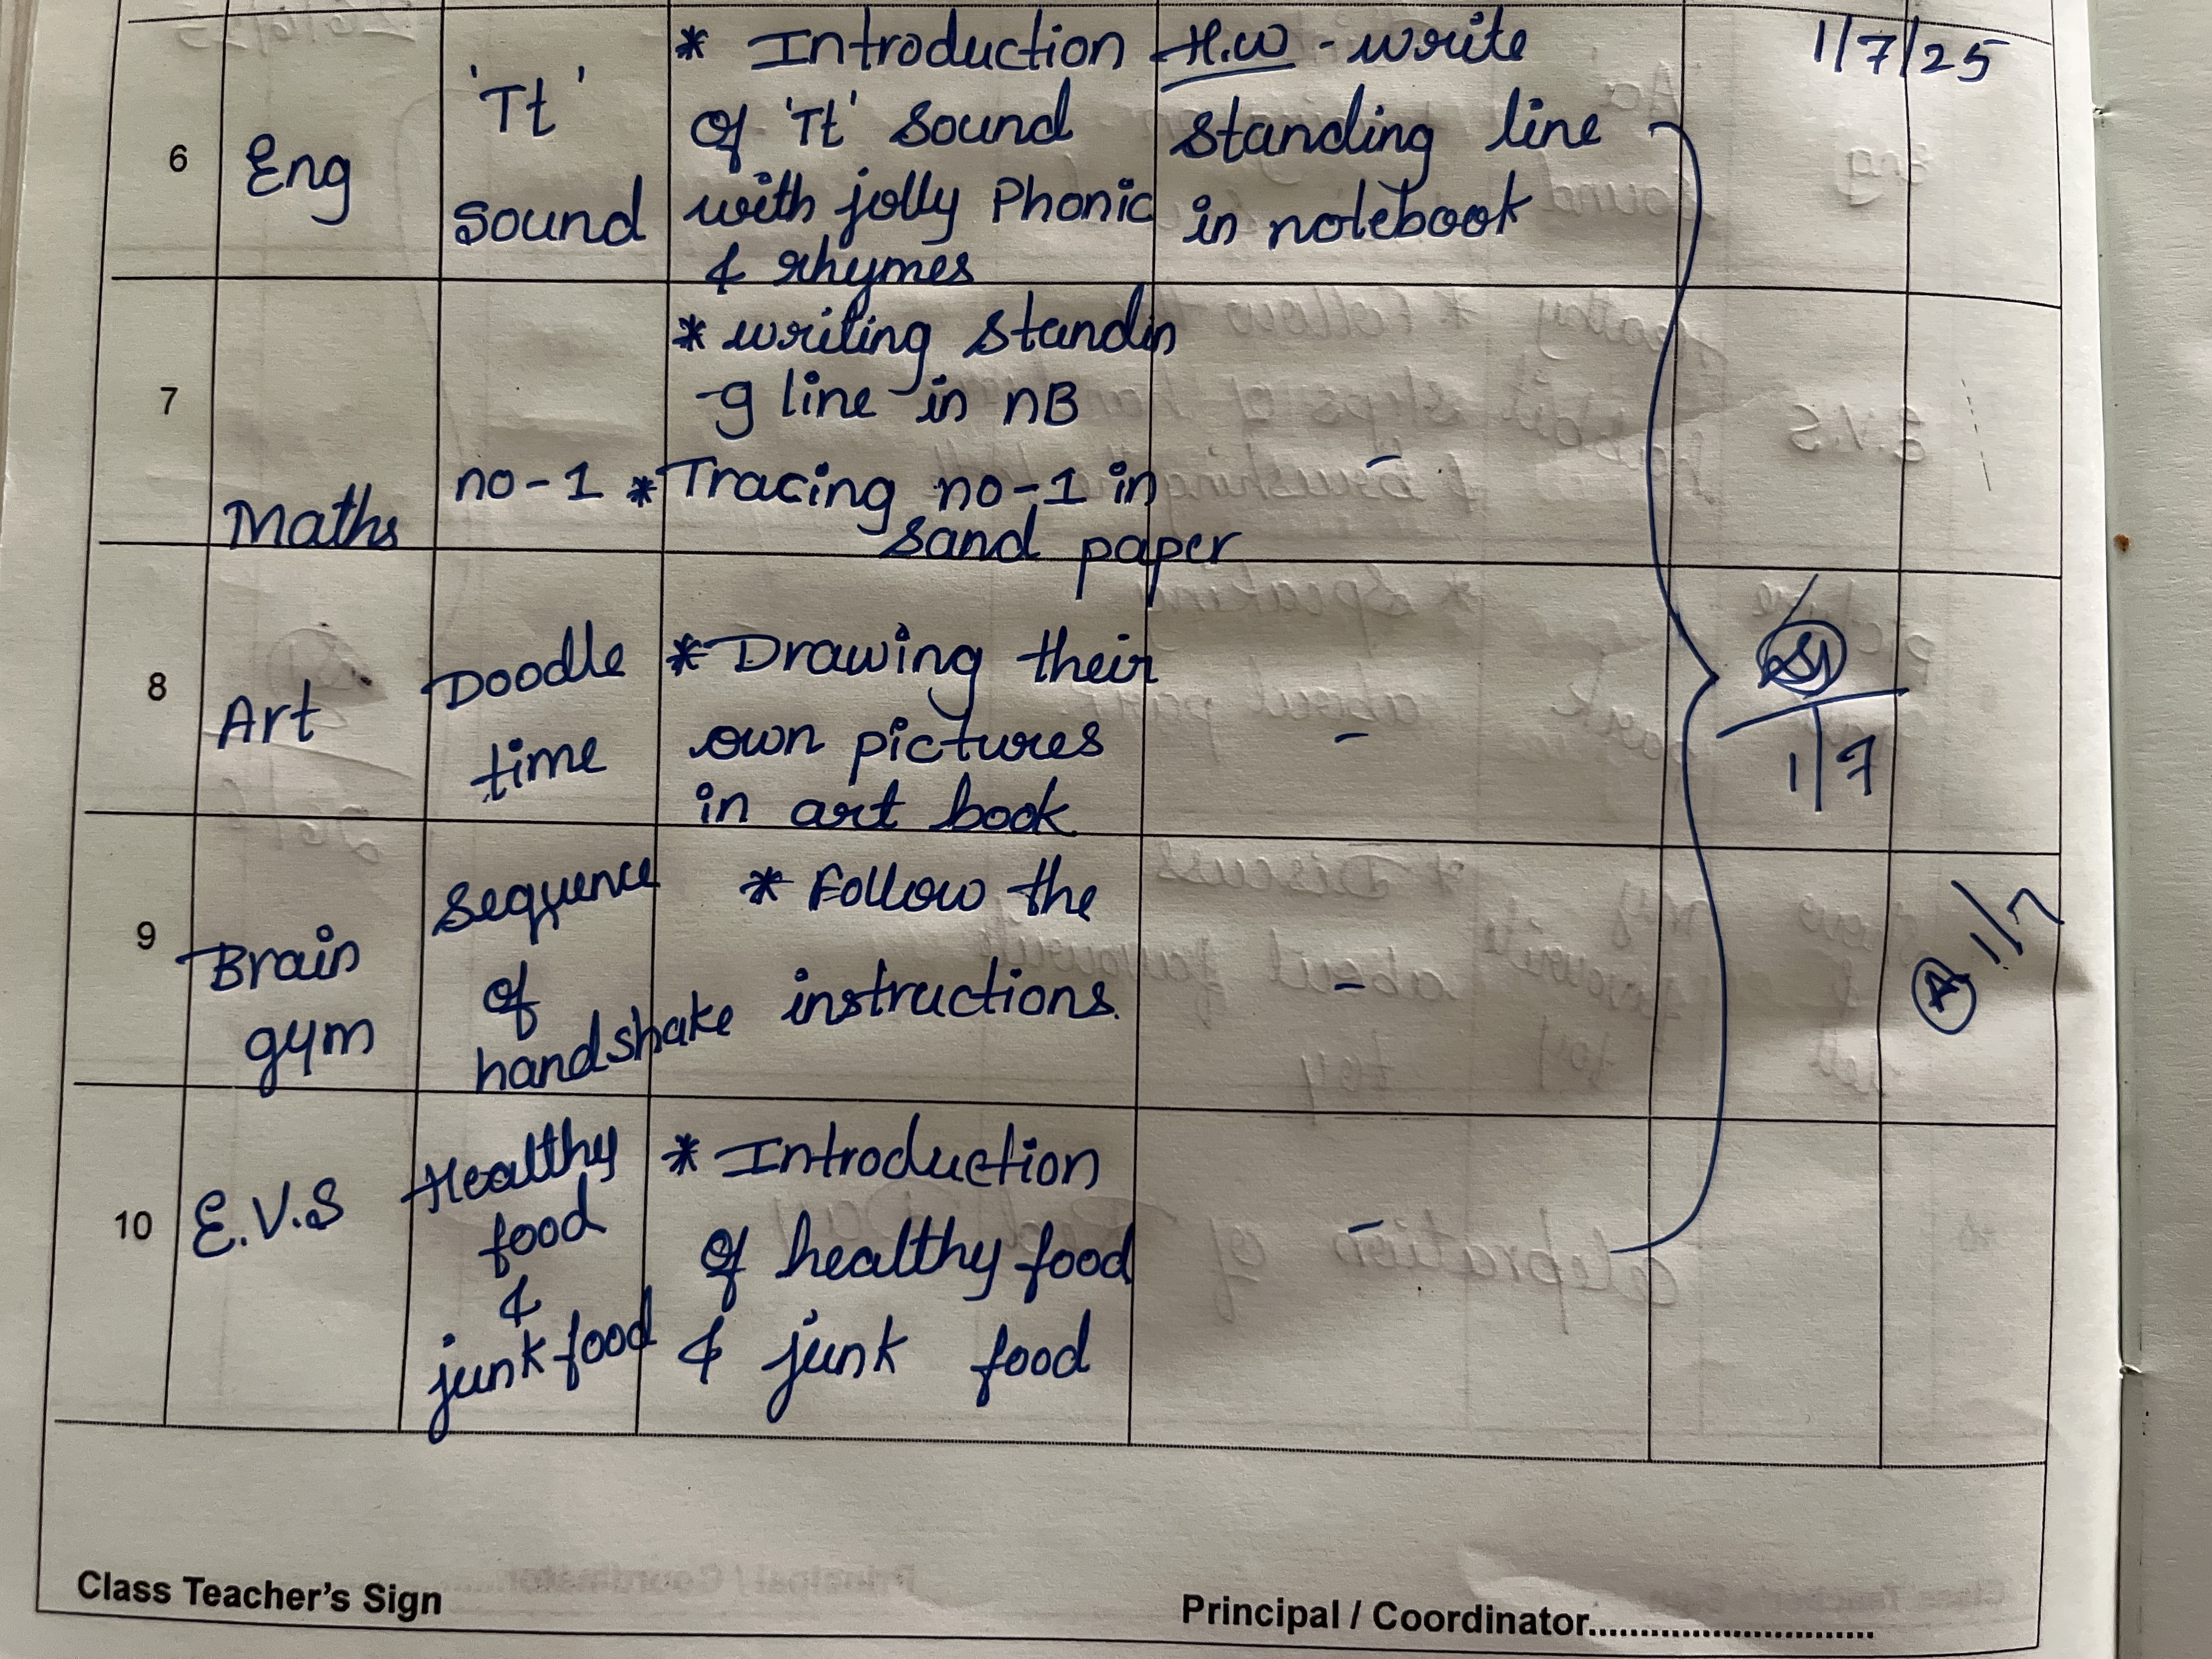 1/7/25
6
Eng
'Tt'
Sound
* Introduction
of 'Tt' sound
with jolly Phonic
& rhymes
H.W - write
standing line
in notebook
7
Maths
no-1
* writing standin
-g line in nB
* Tracing no-1 in
sand paper
-
8
Art
Doodle
time
* Drawing their
own pictures
in art book
-
1/7
9
Brain
gym
Sequence
of
handshake
* Follow the
instructions.
-
A 1/7
10
E.V.S
Healthy
food
&
junk food
* Introduction
of healthy food
& junk food
-
Class Teacher's Sign
Principal / Coordinator............................